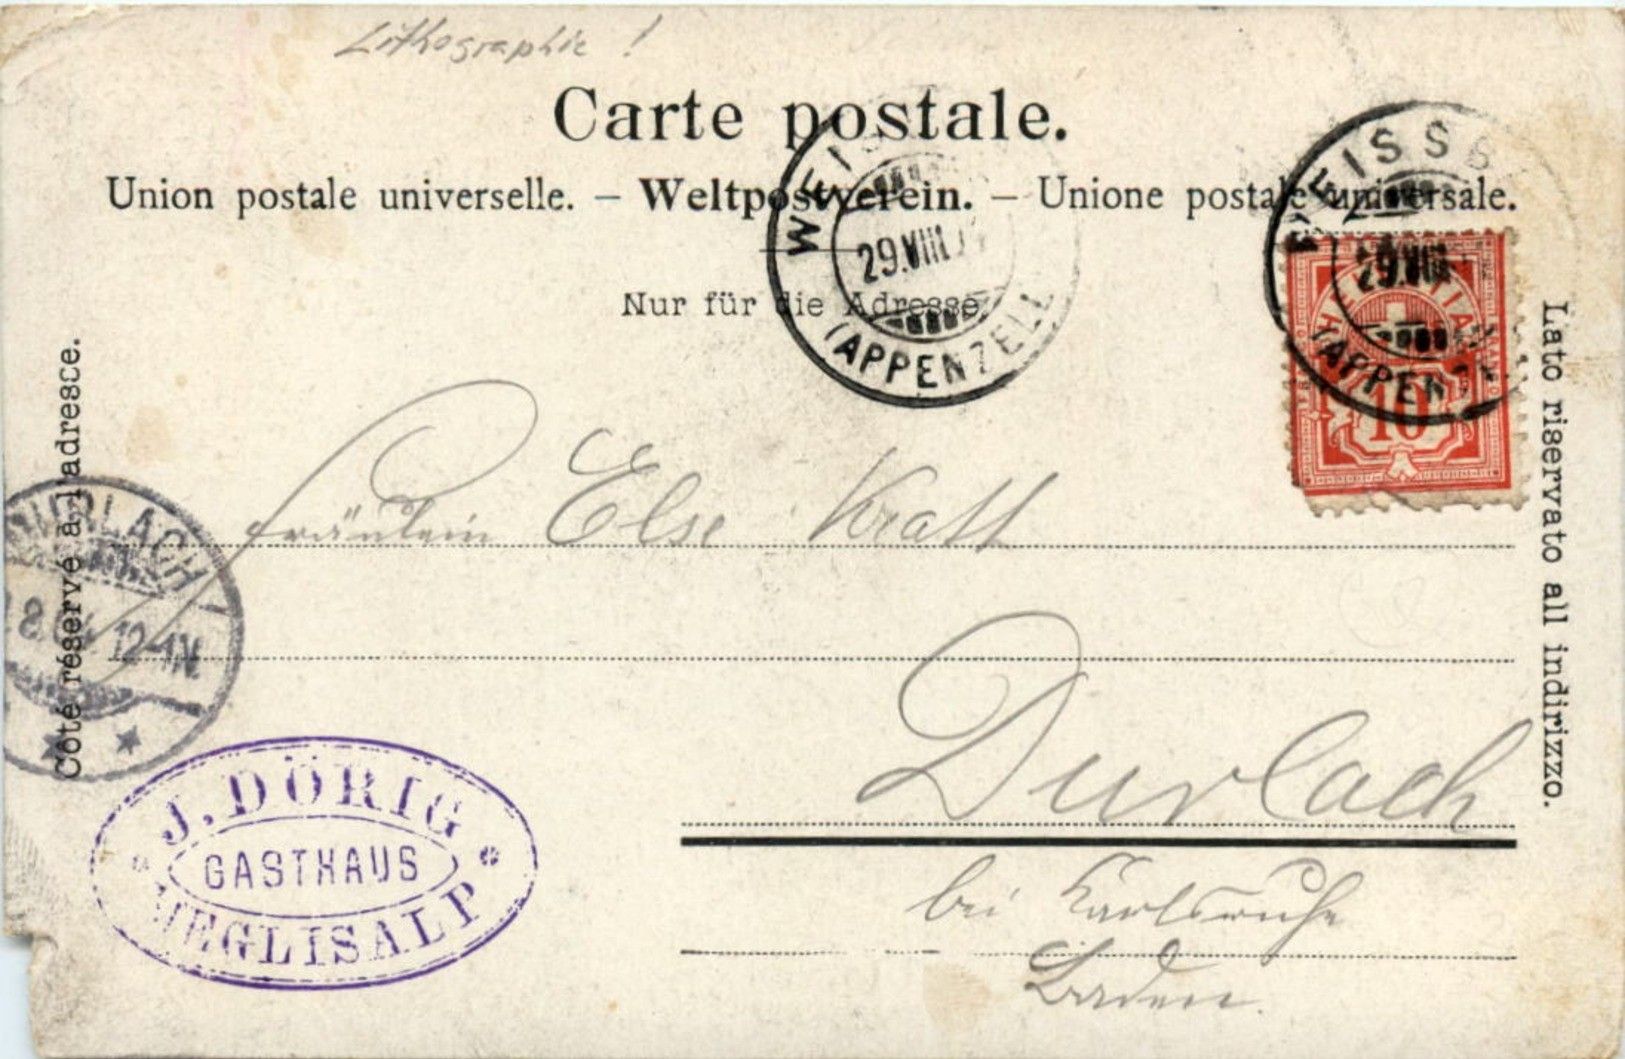 Lithographie !
Carte postale.
Union postale universelle. – Weltpostverein. – Unione postale universale.
Nur für die Adresse
WEISS
29.VIII.
(APPENZELL
WEISSB
29.VIII
(APPENZ
HELVETIA
10
Côté réservé à l'adresce.
Lato riservato all indirizzo.
Fräulein Else Kratt
DURLACH
8.04 12-1N
Durlach
bei Karlsruhe
Baden.
J. DÖRIG
GASTHAUS
MEGLISALP